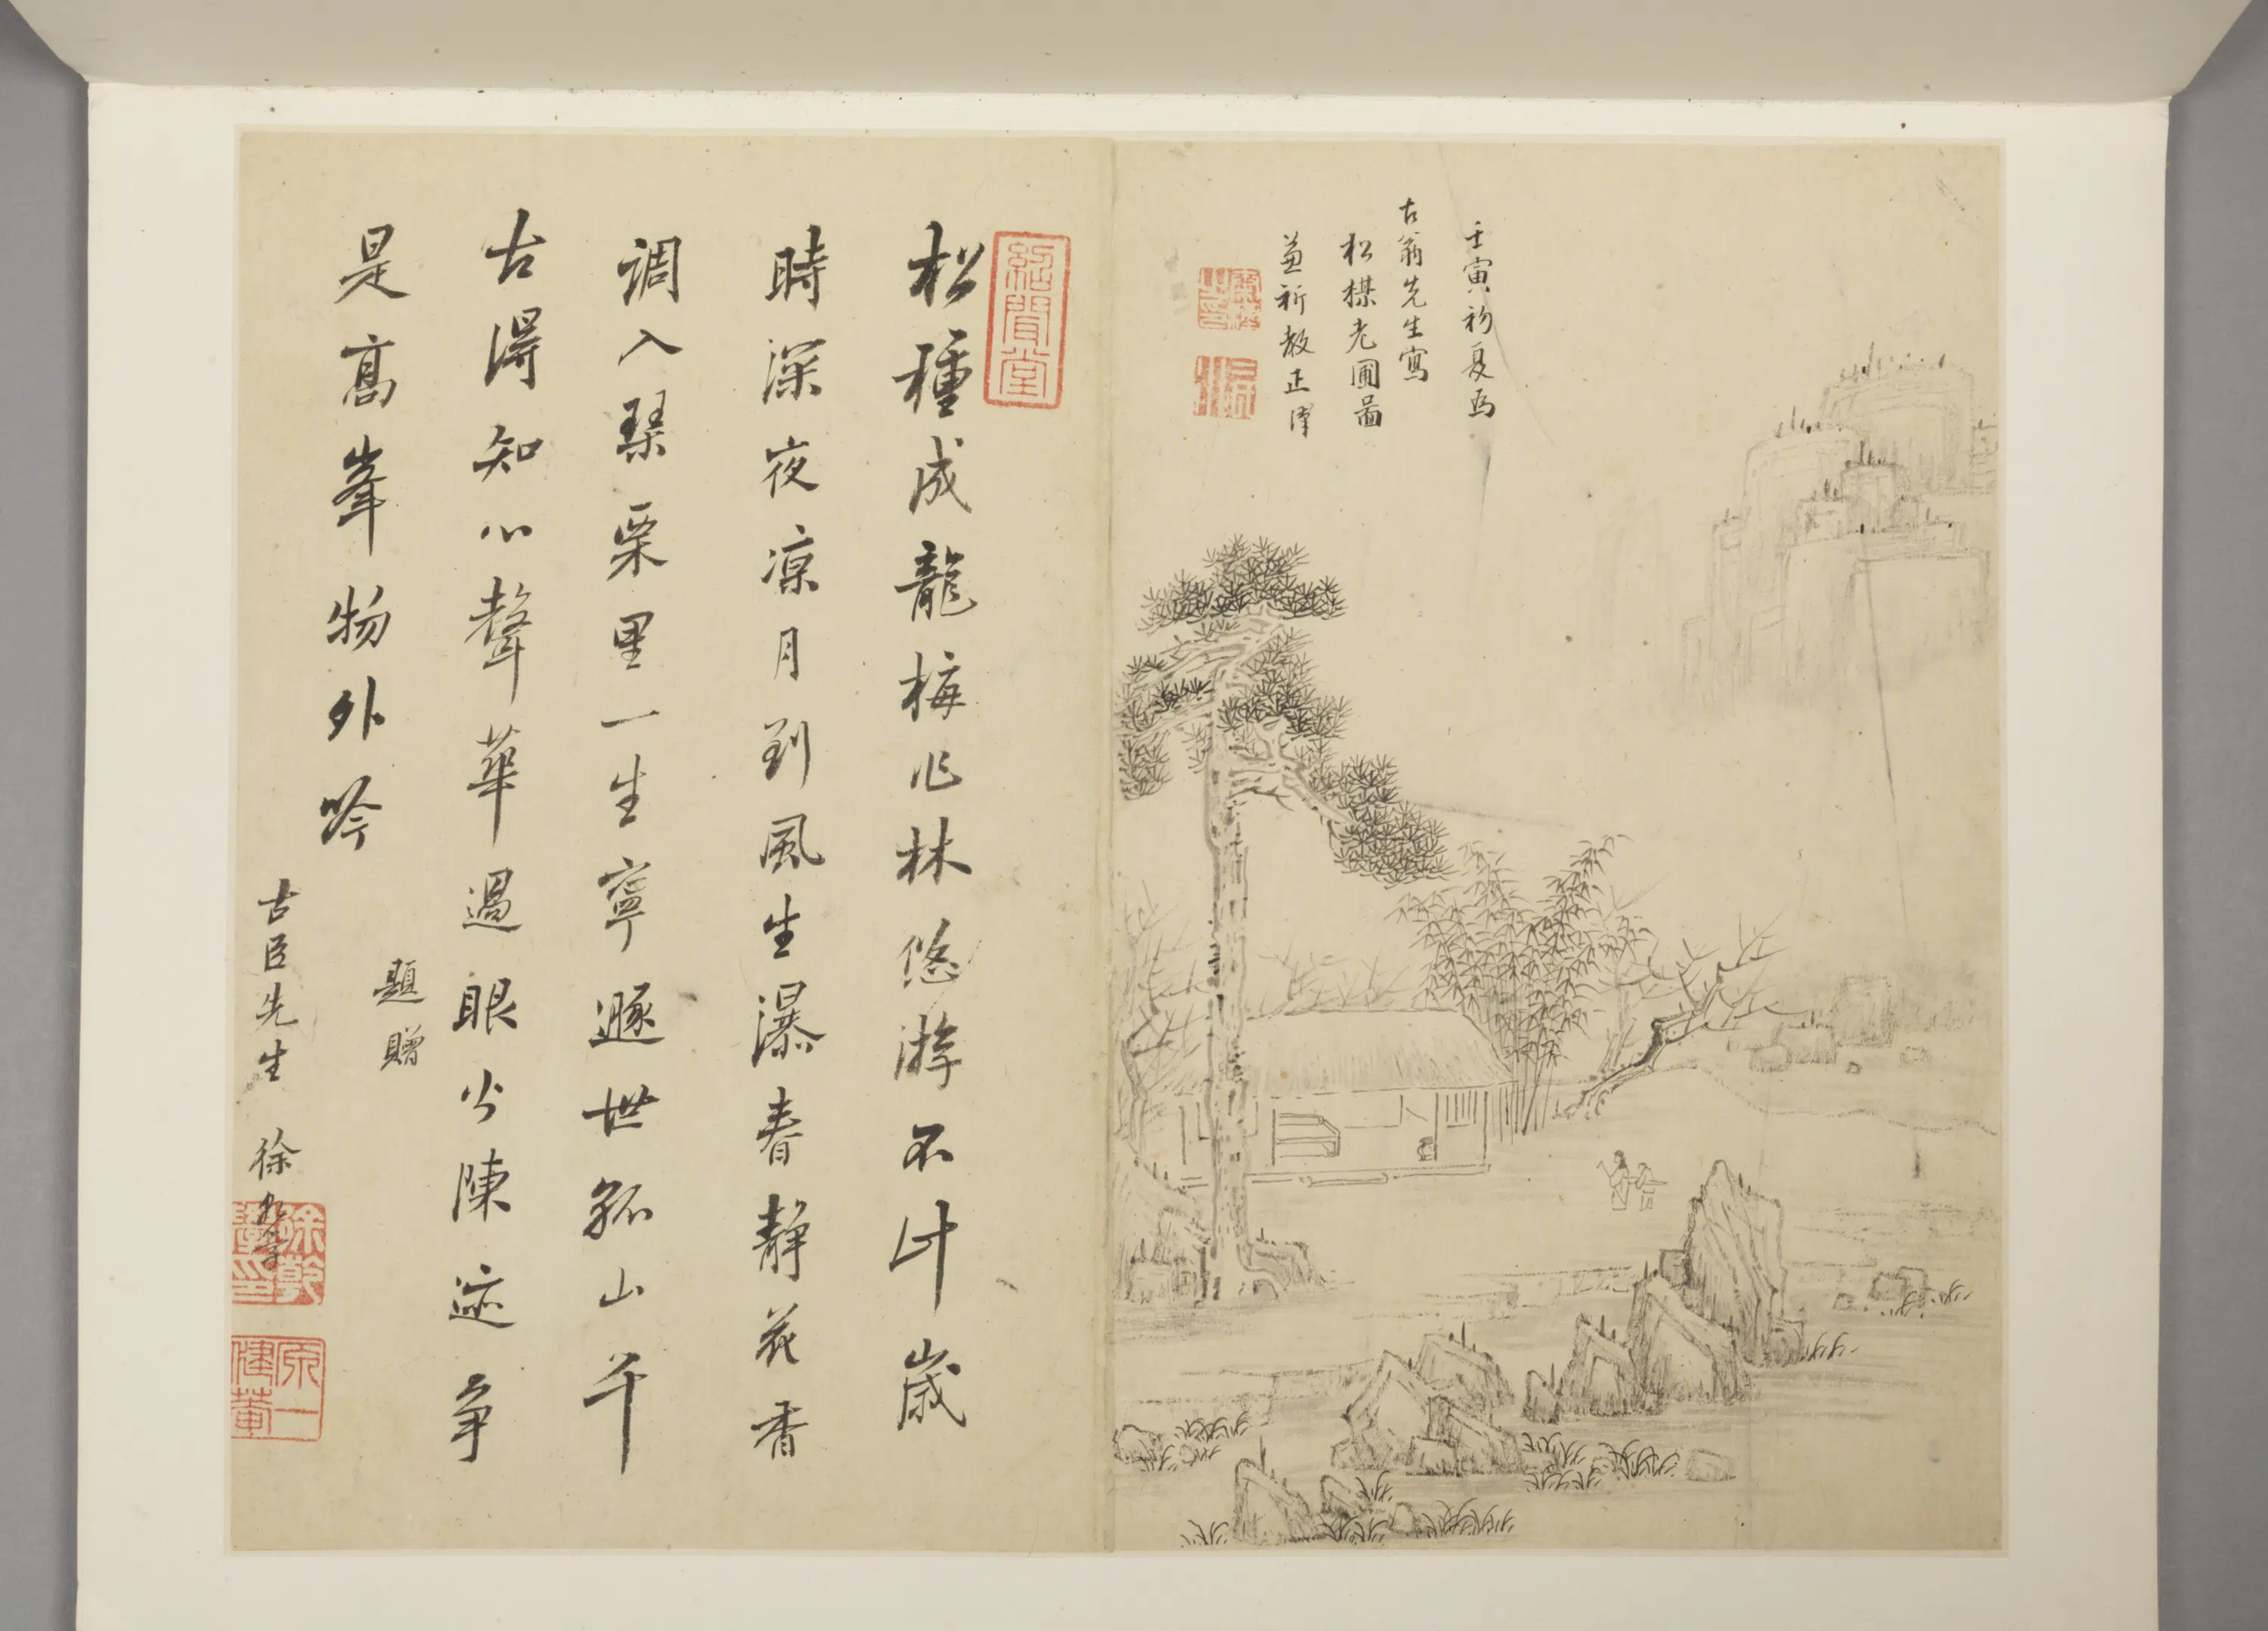 壬寅初夏為
古翁先生寫
松楳老圃圖
祈教正
松種成龍梅作林悠游不計歲
時深夜涼月到風生瀑春靜花香
調入琴栗里一生寧遯世孤山千
古得知心聲華過眼陳迹爭
是高峯物外吟
題贈
古臣先生 徐乾學
徐乾學印
原一健菴